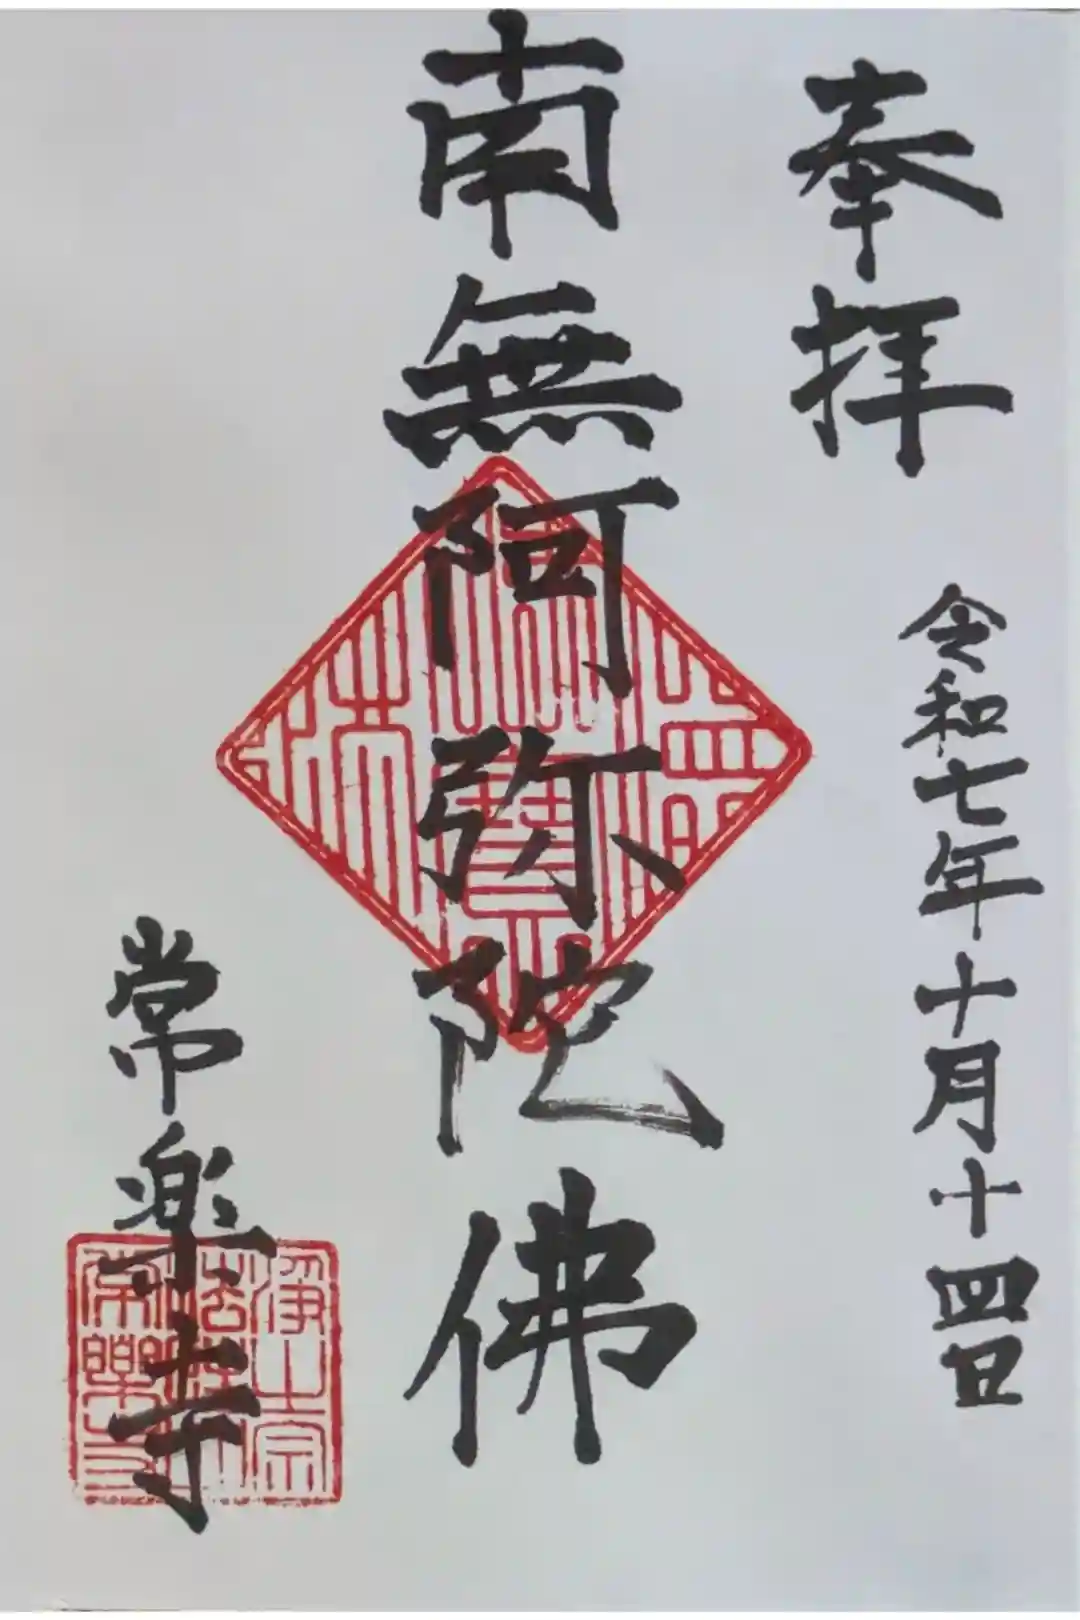 奉拝
令和七年十月十四日
南無阿弥陀佛
常楽寺
浄土宗